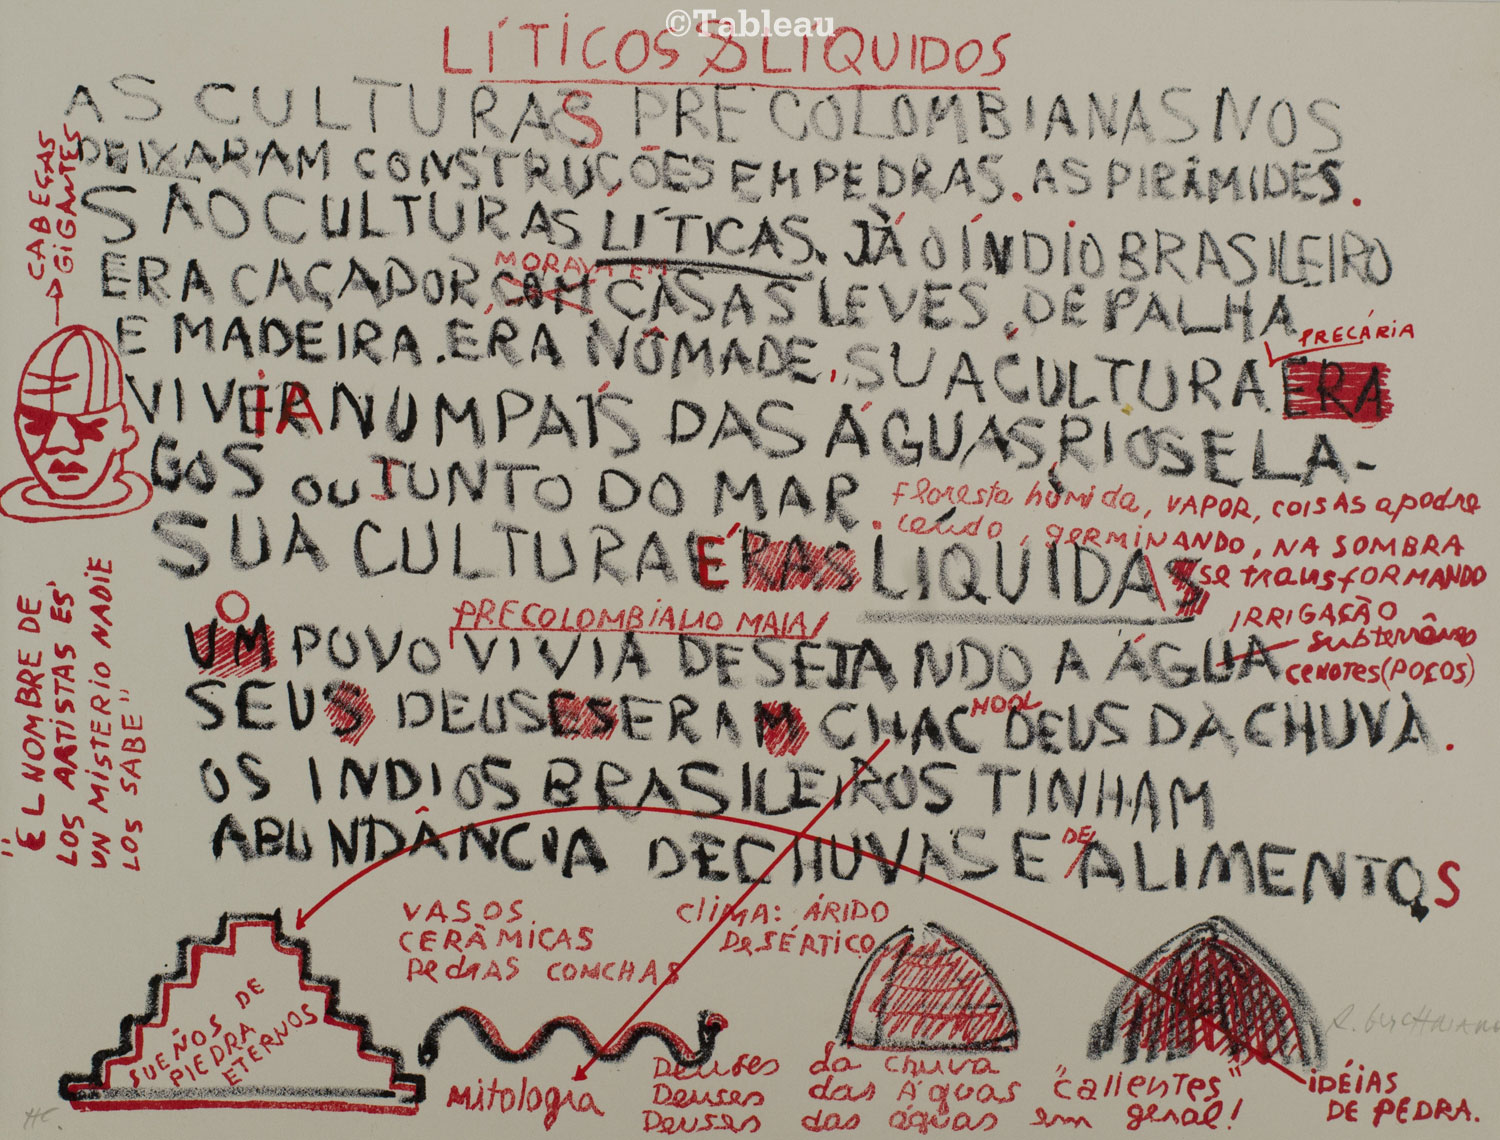 ©Tableau
LÍTICOS & LÍQUIDOS
AS CULTURAS PRÉ COLOMBIANAS NOS
DEIXARAM CONSTRUÇÕES EM PEDRAS. AS PIRÂMIDES.
SÃO CULTURAS LÍTICAS. JÁ O ÍNDIO BRASILEIRO
MORAVA EM
ERA CAÇADOR, COM CASAS LEVES, DE PALHA
E MADEIRA. ERA NÔMADE. SUA CULTURA ERA
PRECÁRIA
VIVER IA NUM PAÍS DAS ÁGUAS, RIOS E LA-
GOS OU JUNTO DO MAR.
SUA CULTURA É RAS LÍQUIDAS
floresta húmida, VAPOR, COISAS apodre
cendo, germINANDO, NA SOMBRA
se transfORMANDO
IRRIGAÇÃO
subterrâneo
CENOTES (POÇOS)
PRECOLOMBIANO MAIA
O
UM POVO VIVIA DESEJANDO A ÁGUA
SEUS DEUSES ERAM CHAC MOOL DEUS DA CHUVA.
OS INDIOS BRASILEIROS TINHAM
ABUNDÂNCIA DE CHUVAS E DE ALIMENTOS
CABEÇAS
GIGANTES
"EL NOMBRE DE
LOS ARTISTAS ES
UN MISTERIO NADIE
LOS SABE"
VASOS
CERÂMICAS
PEDRAS CONCHAS
Clima: ÁRIDO
DESÉRTICO
SUEÑOS DE
PIEDRA
ETERNOS
mitologia
Deuses da chuva
Deuses das Águas "calientes"
Deuses das águas em geral!
IDÉIAS
DE PEDRA.
HC.